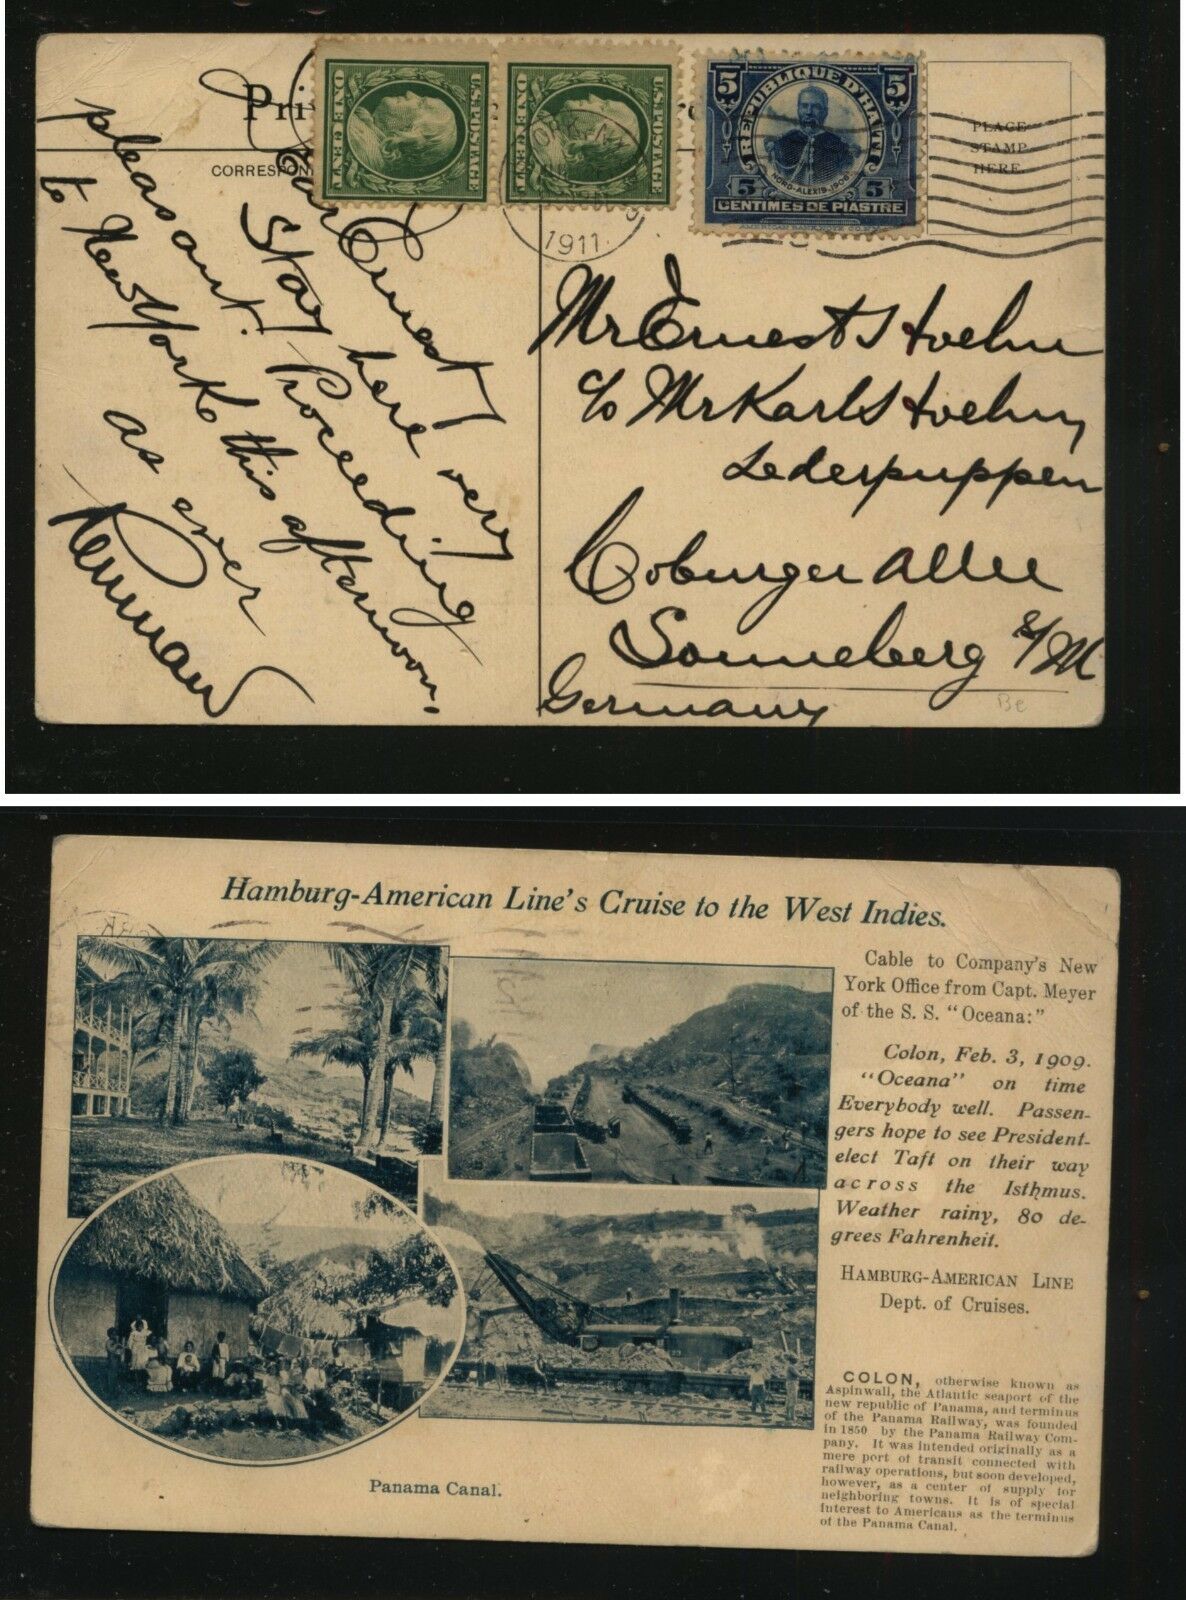 Pri
CORRESPON
PLACE
STAMP
HERE
U.S. POSTAGE
ONE CENT
U.S. POSTAGE
ONE CENT
5 5
REPUBLIQUE D'HAITI
NORD-ALEXIS-1906
5 5
CENTIMES DE PIASTRE
1911
Dear Ernest
Stay here very
pleasant. Proceeding
to New York this afternoon.
as ever
Mr Ernest Stoehr
c/o Mr Karl Stoehr,
Lederpuppen
Coburger Allee
Sonneberg S/M
Germany
Be
Hamburg-American Line's Cruise to the West Indies.
Cable to Company's New
York Office from Capt. Meyer
of the S. S. "Oceana:"
Colon, Feb. 3, 1909.
"Oceana" on time
Everybody well. Passen-
gers hope to see President-
elect Taft on their way
across the Isthmus.
Weather rainy, 80 de-
grees Fahrenheit.
HAMBURG-AMERICAN LINE
Dept. of Cruises.
COLON, otherwise known as
Aspinwall, the Atlantic seaport of the
new republic of Panama, and terminus
of the Panama Railway, was founded
in 1850 by the Panama Railway Com-
pany. It was intended originally as a
mere port of transit connected with
railway operations, but soon developed,
however, as a center of supply for
neighboring towns. It is of special
interest to Americans as the terminus
of the Panama Canal.
Panama Canal.